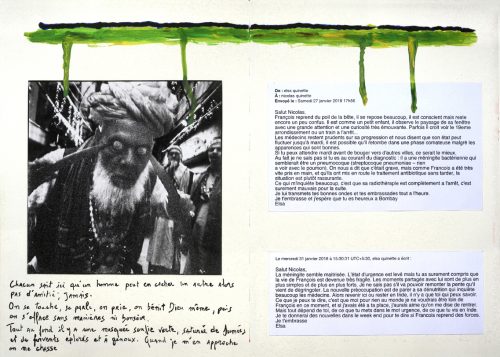 Chacun sait ici qu'un homme peut en cacher un autre alors
pas d'amitié, jamais.
On se touche, se parle, on prie, on bénit Dieu même, puis
on s'efface sans manières ni
Tout au fond il y a une mosquée vert, saturée de
et de fervents éplorés et à genoux. Quand je m'en approche
on me chasse
De : elsa quinette
À : nicolas quinette
Envoyé le : Samedi 27 janvier 2018 17h56
Salut Nicolas,
François reprend du poil de la bête, il se repose beaucoup, il est conscient mais reste
encore un peu confus. Il est comme un petit enfant, il observe le paysage de sa fenêtre
avec une grande attention et une curiosité très émouvante. Parfois il croit voir le 19eme
arrondissement ou un train à l'arrêt.
Les médecins restent prudents sur sa progression et nous disent que son état peut
fluctuer jusqu'à mardi, il est possible qu'il retombe dans une phase comateuse malgré les
apparences qui sont bonnes.
Si tu peux attendre mardi avant de bouger vers d'autres villes, ce serait le mieux.
Au fait je ne sais pas si tu es au courant du diagnostic : il a une méningite bactérienne qui
semblerait être un pneumocoque (streptocoque pneumoniae - rien
à voir avec le poumon). On nous a dit que c'était grave, mais comme François a été très
vite pris en main, et qu'ils ont mis en route le traitement antibiotique sans tarder, la
situation est plutôt rassurante.
Ce qui m'inquiète beaucoup, c'est que sa radiothérapie est complètement à l'arrêt, c'est
sûrement mauvais pour la suite.
Je lui transmets tes bonnes ondes et tes embrassades tout à l'heure.
Je t'embrasse et j'espère que tu es heureux à Bombay
Elsa
Le mercredi 31 janvier 2018 à 15:30:31 UTC+5:30, elsa quinette a écrit :
Salut Nicolas,
La méningite semble maîtrisée. L'état d'urgence est levé mais tu as sûrement compris que
la vie de François est devenue très fragile. Les moments partagés avec lui sont de plus en
plus simples et de plus en plus forts. Je ne sais pas s'il va pouvoir remonter la pente qu'il
vient de dégringoler. La nouvelle préoccupation est de parer à sa dénutrition qui inquiète
beaucoup les médecins. Alors revenir ici ou rester en Inde, il n'y a que toi qui peux savoir.
Ce que je peux te dire, c'est que moi pour rien au monde je ne voudrais être loin de
François en ce moment, et si j'avais été à ta place, j'aurais aimé qu'on me dise de rentrer.
Mais tout dépend de toi, de ce que tu mets dans le mot urgence, de ce que tu vis en Inde.
Je te donnerai des nouvelles dans le week end pour te dire si François reprend des forces.
Je t'embrasse
Elsa